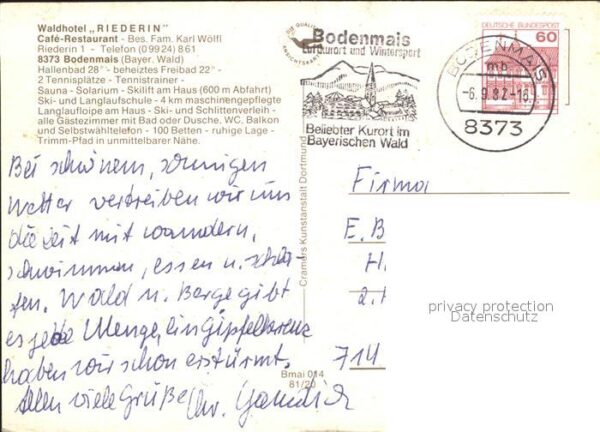 Waldhotel „RIEDERIN"
Café-Restaurant - Bes. Fam. Karl Wölfl
Riederin 1 - Telefon (09924) 861
8373 Bodenmais (Bayer. Wald)
Hallenbad 28° - beheiztes Freibad 22° -
2 Tennisplätze - Tennistrainer -
Sauna - Solarium - Skilift am Haus (600 m Abfahrt)
Ski- und Langlaufschule - 4 km maschinengepflegte
Langlaufloipe am Haus - Ski- und Schlittenverleih -
alle Gästezimmer mit Bad oder Dusche, WC, Balkon
und Selbstwähltelefon - 100 Betten - ruhige Lage -
Trimm-Pfad in unmittelbarer Nähe.
Bei schönem, sonnigen
Wetter vertreiben wir uns
die Zeit mit wandern,
schwimmen, essen u. schla-
fen. Wald u. Berge gibt
es jede Menge, ein Gipfelkreuz
haben wir schon erstürmt.
Allen viele Grüße
Cramers Kunstanstalt Dortmund
Bmai 014
81/20
Bodenmais
Luftkurort und Wintersport
Beliebter Kurort im
Bayerischen Wald
DEUTSCHE BUNDESPOST
60
BODENMAIS
mb
-6.9.82-16
8373
Firma
E. B
H.
714
privacy protection
Datenschutz